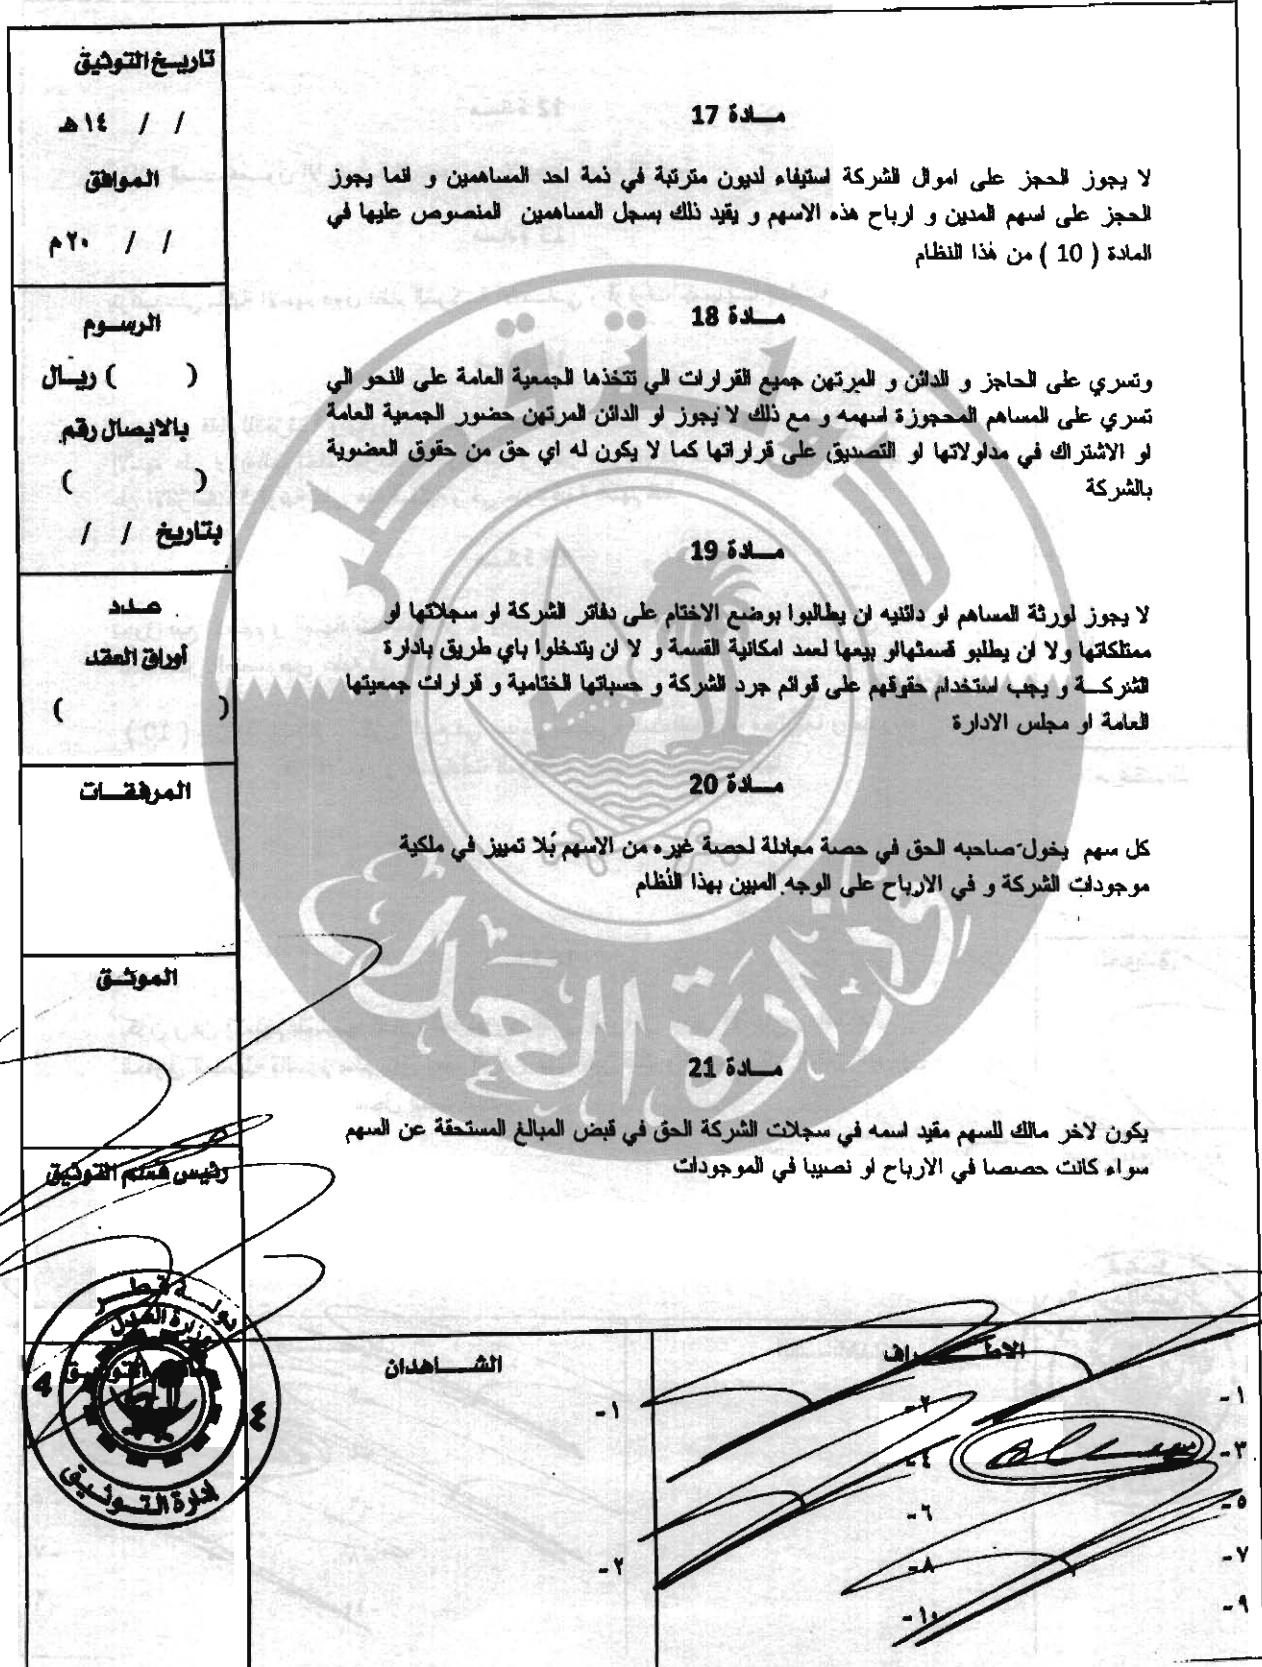 مـــادة 17
لا يجوز الحجز على اموال الشركة استيفاء لديون مترتبة في ذمة احد المساهمين و انما يجوز
الحجز على اسهم المدين و ارباح هذه الاسهم و يقيد ذلك بسجل المساهمين المنصوص عليها في
المادة ( 10 ) من هذا النظام
مـــادة 18
وتسري على الحاجز و الدائن و المرتهن جميع القرارات الي تتخذها الجمعية العامة على النحو الي
تسري على المساهم المحجوزة اسهمه و مع ذلك لا يجوز او الدائن المرتهن حضور الجمعية العامة
او الاشتراك في مداولاتها او التصديق على قراراتها كما لا يكون له اي حق من حقوق العضوية
بالشركة
مـــادة 19
لا يجوز لورثة المساهم او دائنيه ان يطالبوا بوضع الاختام على دفاتر الشركة او سجلاتها او
ممتلكاتها ولا ان يطلبو قسمتهااو بيعها لعمد امكانية القسمة و لا ان يتدخلوا باي طريق بادارة
الشركـــة و يجب استخدام حقوقهم على قوائم جرد الشركة و حسباتها الختامية و قرارات جمعيتها
العامة او مجلس الادارة
مـــادة 20
كل سهم يخول صاحبه الحق في حصة معادلة لحصة غيره من الاسهم بلا تمييز في ملكية
موجودات الشركة و في الارباح على الوجه المبين بهذا النظام
مـــادة 21
يكون لاخر مالك للسهم مقيد اسمه في سجلات الشركة الحق في قبض المبالغ المستحقة عن السهم
سواء كانت حصصا في الارباح او نصيبا في الموجودات
تاريـخ التوثيق
/ / ١٤هـ
الموافق
/ / ٢٠م
الرســوم
( ) ريــال
بالايصال رقم
( )
بتاريخ / /
عــدد
أوراق العقد
( )
المرفقــات
الموثــق
رئيس قسم التوثيق
الاطــــراف
١-
٢-
٣-
٤-
٥-
٦-
٧-
٨-
٩-
١٠-
الشــــاهدان
١-
٢-
دولـة قطــر
وزارة العدل
4
٤
التوثيق
ادارة التـوثـيق
دولة قطر
وزارة العدل